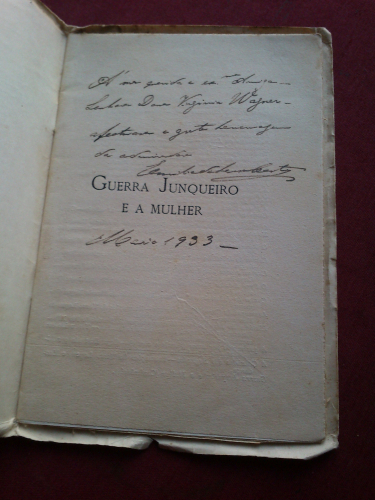 À
Senhora Dona Virginia Wagner
afectuosa e grata homenagem
de admiração
GUERRA JUNQUEIRO
E A MULHER
Maio 1933